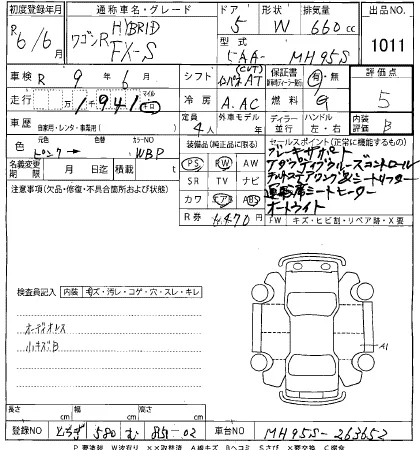 初度登録年月 通称車名・グレード ドア 形状 排気量 出品NO.
R 6/6月 ワゴンR HYBRID FX-S 5 W 660cc 1011
型式 5AA- MH95S
車検 R 9年 6月 シフト (CVT) AT 保証書 有・無 評価点
走行 1941 マイル km 冷房 A.AC 燃料 G 5
車歴 自家用・レンタ・事業用( ) 定員 4人 外車モデル 年 ディーラー 並行 ハンドル 左・右 内装 B
色 元色 色替 カラーNO
ピンク→ WBP
装備品(純正品に限る) セールスポイント(正常に機能するもの)
PS PW AW
SR TV ナビ
カワ エアB ABS
R券 6,470
ブレーキサポート
アダプティブクルーズコントロール
チルトステアリング&シートリフター
運転席シートヒーター
オートライト
FW キズ・ヒビ割・リペア跡・X要
名義変更期限 月 日迄 積載 t
注意事項(欠品・修復・不具合箇所および状態)
検査員記入 内装 キズ・汚レ・コゲ・穴・スレ・キレ
オーディオレス
小キズB
A1
長さ cm 幅 cm 高さ cm
登録NO とちぎ 580 む 851-02 車台NO MH95S-263652
P 要塗装 W波有り XX取替済 A線キズ Bヘコミ Sさび X要交換 C腐食